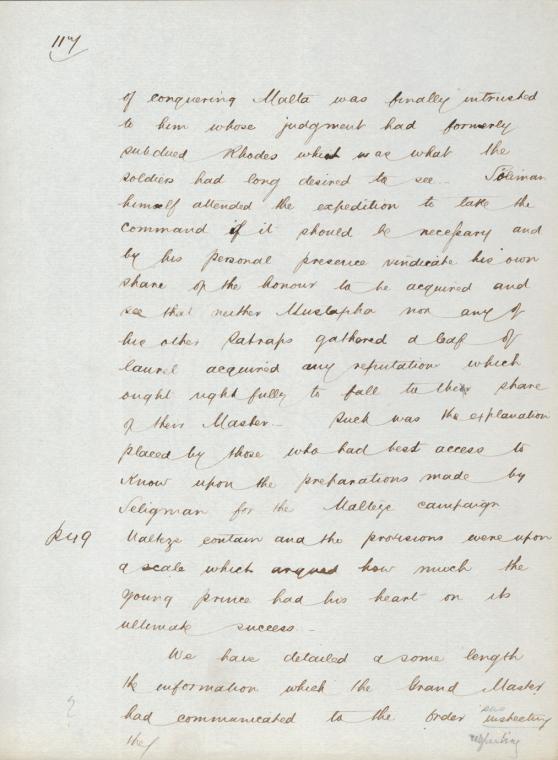 117
of conquering Malta was finally intrusted
to him whose judgment had formerly
subdued Rhodes which was what the
soldiers had long desired to see - Soliman
himself attended the expedition to take the
command if it should be necessary and
by his personal presence vindicate his own
share of the honour to be acquired and
see that neither Mustapha nor any of
his other Satraps gathered a leaf of
laurel acquired any reputation which
ought rightfully to fall to their share
of their Master - Such was the explanation
placed by those who had best access to
know upon the preparations made by
Seligman for the Malteze campaign
p49 Malteze contain and the provisions were upon
a scale which argued how much the
young prince had his heart on its
ultimate success -
We have detailed a some length
the information which the Grand Master
had communicated to the Order inspecting
they